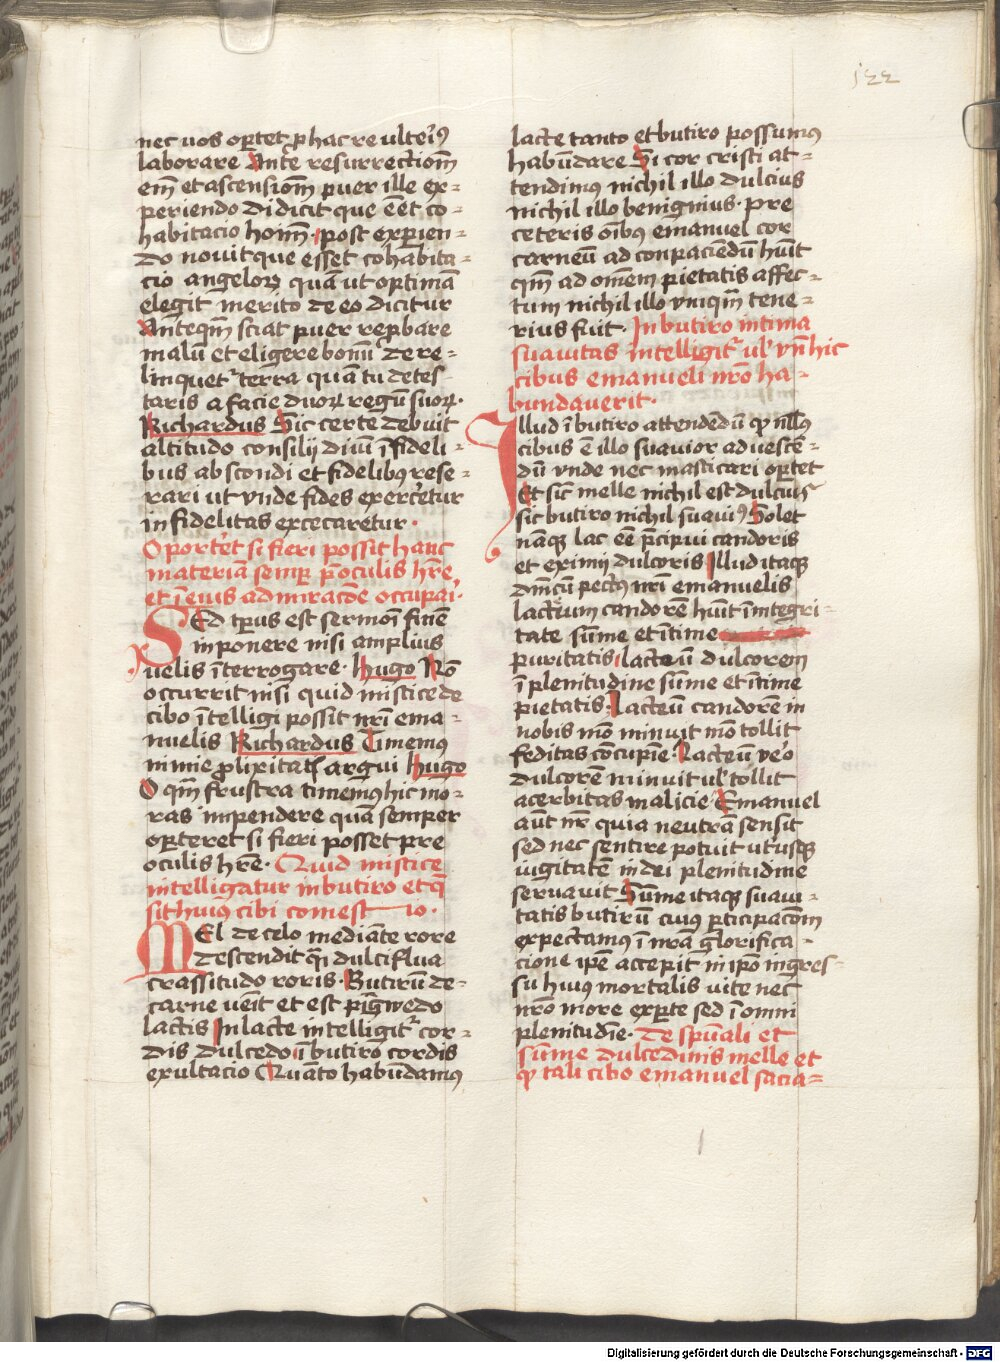 122
nec uos oꝑtet ꝑ hac re ulteriꝰ
laborare Ante resurrectionē
em̄ et ascensionē puer ille ex=
periendo didicit que eēt co=
habitacio hom̄. post experien=
do nouit que esset cohabita=
cio angeloꝝ quā ut optimā
elegit merito de eo dicitur
Anteqm̄ sciat puer reꝓbare
malū et eligere bonū dere=
linquet᷑ terra quā tu detes
taris a facie duoꝝ regū suoꝝ.
Richardus Sic certe debuit
altitudo consilij diuī īfideli=
bus abscondi et fidelibꝰ rese=
rari ut vnde fides exercetur
infidelitas excecaretur.
Oportet si fieri possit hanc
materiā semꝑ p̄ oculis hr̄e,
et ī eius admiracōe occupari.
SEd tꝑus est sermoī finē
inponere nisi amplius
uelis īterrogare. Hugo Nō
occurrit nisi quid mistice de
cibo ītelligi possit nr̄i ema=
nuelis Richardus Timemꝰ
nimie ꝓlixitatꝭ argui Hugo
O qm̄ frustra timemꝰ hic mo=
ras impendere quā semper
oꝑteret si fieri posset pre
oculis hr̄e. Quid mistice
intelligatur in butiro et qͥ
sit huiꝰ cibi comestio.
MEl de celo mediāte rore
descendit qͣi dulciflua
crassitudo roris. Butirū de=
carne uēit et est pīgwedo
lactis In lacte intelligit᷑ cor=
dis dulcedo ī butiro cordis
exultacio Quāto habūdamꝰ
lacte tanto et butiro possumꝰ
habūdare Si cor cristi at=
tendimꝰ nichil illo dulcius
nichil illo benignius. pre
ceteris oībꝰ emanuel cor
carneū ad conpaciēdū hūit
qm̄ ad omēm pietatis affec=
tum nichil illo vniqm̄ tene=
rius fuit. In butiro intima
suauitas intelligit᷑ ul̓ vn̄ hic
cibus emanueli nr̄o ha=
bundauerit.
Illud ī butiro attendēdū qꝫ nll̓ꝰ
cibus ē illo suauior ad uescē=
dū vnde nec masticari oꝑtet
Et sic̄ melle nichil est dulciꝰ
sic butiro nichil suauiꝰ Solet
nāqꝫ lac eē p̄cipui candoris
et eximij dulcoris Illud itaqꝫ
dnīcū pectꝰ nr̄i emanuelis
lacteum candorē hūit ī integri=
tate sūme et ītime
puritatis lacteū dulcorem
ī plenitudine sūme et ītime
pietatis. Lacteū candorē in
nobis mō minuit mō tollit
feditas cōcupīe. Lacteū ūo
dulcorē minuit ul̓ tollit
acerbitas malicie Emanuel
aūt nr̄ quia neutrā sensit
sed nec sentire potuit utꝰusqꝫ
iugitatē in dei plenitudine
seruauit Sūme itaqꝫ suaui=
tatis butirū cuiꝰ ꝑticipacōem
expectamꝰ ī nr̄a glorifica=
cione ip̄e accepit in ip̄o ingres=
su huiꝰ mortalis uite nec̄
nr̄o more experte sed ī omni
plenitudīe. De spūali et
sūme dulcedinis melle et
qꝫ tali cibo emanuel sacia=
Digitalisierung gefördert durch die Deutsche Forschungsgemeinschaft - DFG